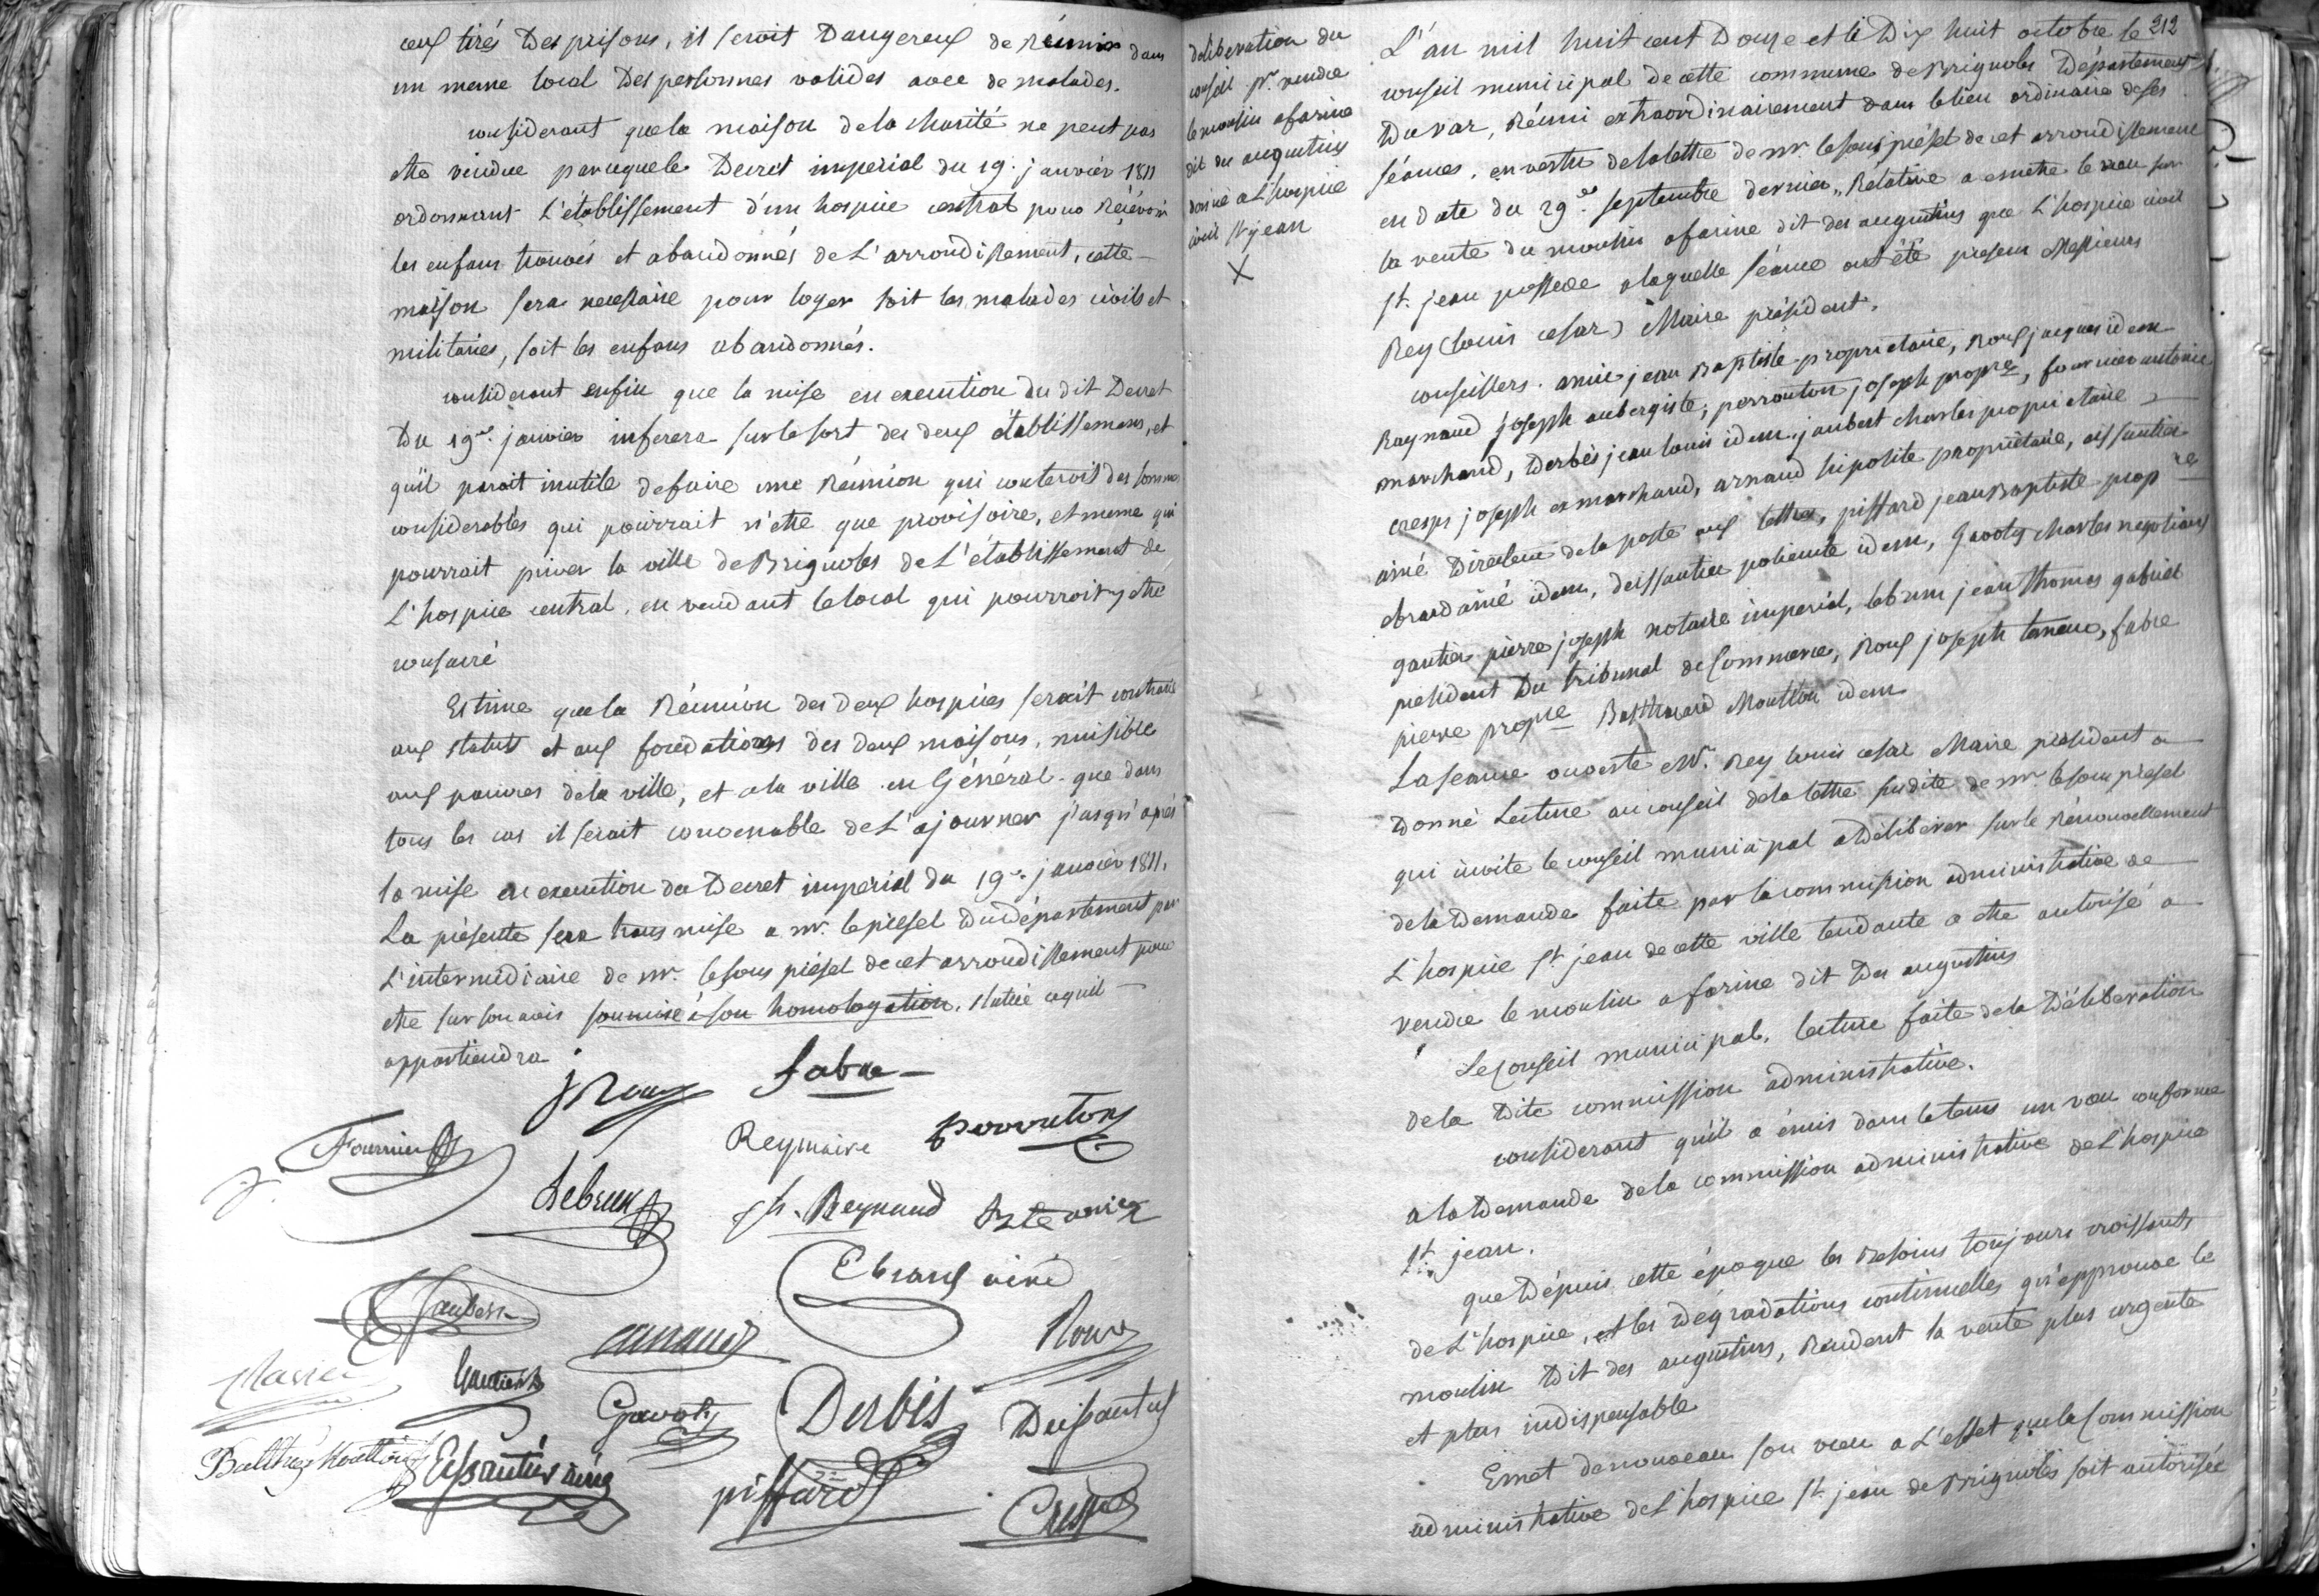 ceux tirés des prisons, il seroit dangereux de réunir dans
un meme local des personnes valides avec de malades.
considerant que la maison de la charité ne peut pas
etre vendue parceque le Decret imperial du 19. janvier 1811
ordonnant l'établissement d'un hospice central pour récévoir
les enfans trouvés et abandonnés de l'arrondissement, cette
maison sera necessaire pour loger soit les malades civils et
militaires, soit les enfans abandonnés.
considerant enfin que la mise en execution du dit Decret
du 19 janvier influera sur le sort des deux établissemens, et
qu'il paroit inutile de faire une réunion qui couteroit des sommes
considerables qui pourrait n'etre que provisoire, et meme qui
pourrait priver la ville de Brignoles de l'établissement de
l'hospice central, en vendant le local qui pourroit y etre
consacré
Estime que la réunion des deux hospices serait contraire
aux statuts et aux fondations des deux maisons, nuisible
aux pauvres de la ville, et a la ville en général. que dans
tous les cas il serait convenable de l'ajourner jusqu'après
la mise en execution du Decret imperial du 19 janvier 1811.
La présente sera transmise a mr. le préfet du département par
l'intermédiaire de mr. le sous préfet de cet arrondissement pour
etre sur son avis soumise à son homologation, statué ce qu'il
appartiendra
J Roux fabre
Fournier Reymaire Perrouton
Lebrun Jh. Reynaud Bte amic
Ebrard ainé
Jaubert
arnaud Roux
Gautier
Gavoty Derbès Deissautier
Balthd Moutton Eissautier ainé
piffard Cresp
deliberation du
conseil pr. vendre
le moulin a farine
dit des augustins
donné a l'hospice
civil St jean
X
212
L'an mil huit cent douze et le dix huit octobre le
conseil municipal de cette commune de Brignoles département
du var, réuni extraordinairement dans le lieu ordinaire de ses
séances, en vertu de la lettre de mr. le sous préfet de cet arrondissement
en date du 29 septembre dernier, relative a emettre le vœu sur
la vente du moulin a farine dit des augustins que l'hospice civil
St. jean possede a laquelle séance ont été presens Messieurs
Rey (Louis cesar) Maire président.
conseillers. amic jean Baptiste proprietaire, Roux jacques idem
Raynaud joseph aubergiste, perrouton joseph propre, fournier antoine
marchand, derbès jean louis idem, jaubert charles proprietaire,
cresp joseph ex marchand, arnaud hipolite proprietaire, eissautier
ainé directeur de la poste aux lettres, piffard jean Baptiste propre
ebrard ainé idem, deissautier policarte idem, Gavoty charles negotiant
gautier pierre joseph notaire imperial, lebrun jean thomas gabriel
president du tribunal de commerce, Roux joseph taneur, fabre
pierre propre Balthazard Moutton idem
La seance ouverte Mr. Rey louis cesar Maire president a
donné lecture au conseil de la lettre susdite de mr. le sous préfet
qui invite le conseil municipal a déliberer sur le rénouvellement
de la demande faite par la commission administrative de
l'hospice St. jean de cette ville tendante a etre autorisé a
vendre le moulin a farine dit des augustins
Le conseil municipal, lecture faite de la déliberation
de la dite commission administrative.
considerant qu'il a émis dans le tems un vœu conforme
a la demande de la commission administrative de l'hospice
St. jean.
que dépuis cette époque les besoins toujours croissants
de l'hospice, et les dégradations continuelles qu'epprouve le
moulin dit des augustins, rendent la vente plus urgente
et plus indispensable
Emet de nouveau son vœu a l'effet que la commission
administrative de l'hospice St. jean de Brignoles soit autorisée